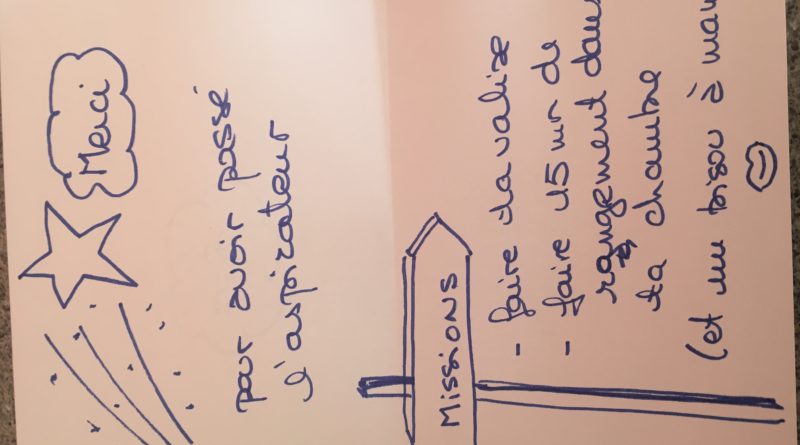 Merci
pour avoir passé
l'aspirateur
MISSIONS
- faire ta valise
- faire 45 mn de
rangement dans
ta chambre
(et un bisou à